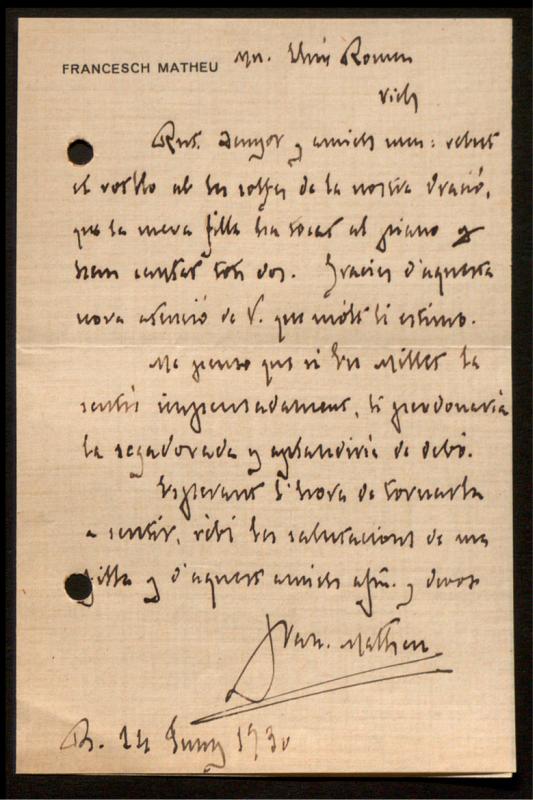 FRANCESCH MATHEU
Mn. Lluis Romeu
Vich
Rnt. Senyor y amich meu: rebut
el rotllo ab les solfes de la nostra Oració,
que la meva filla ha tocat al piano y
hem cantat tots dos. Gracies d'aquesta
nova atenció de V. que mólt li estimo.
Me penso que si En Millet la
sentís impensadament, li perdonaría
la segadorada y aplaudiría de debó.
Esperant l'hora de tornarla
a sentir, rebi les salutacions de ma
filla y d'aquest amich afm. y devot
Fran. Matheu
B. 24 Juny 1930